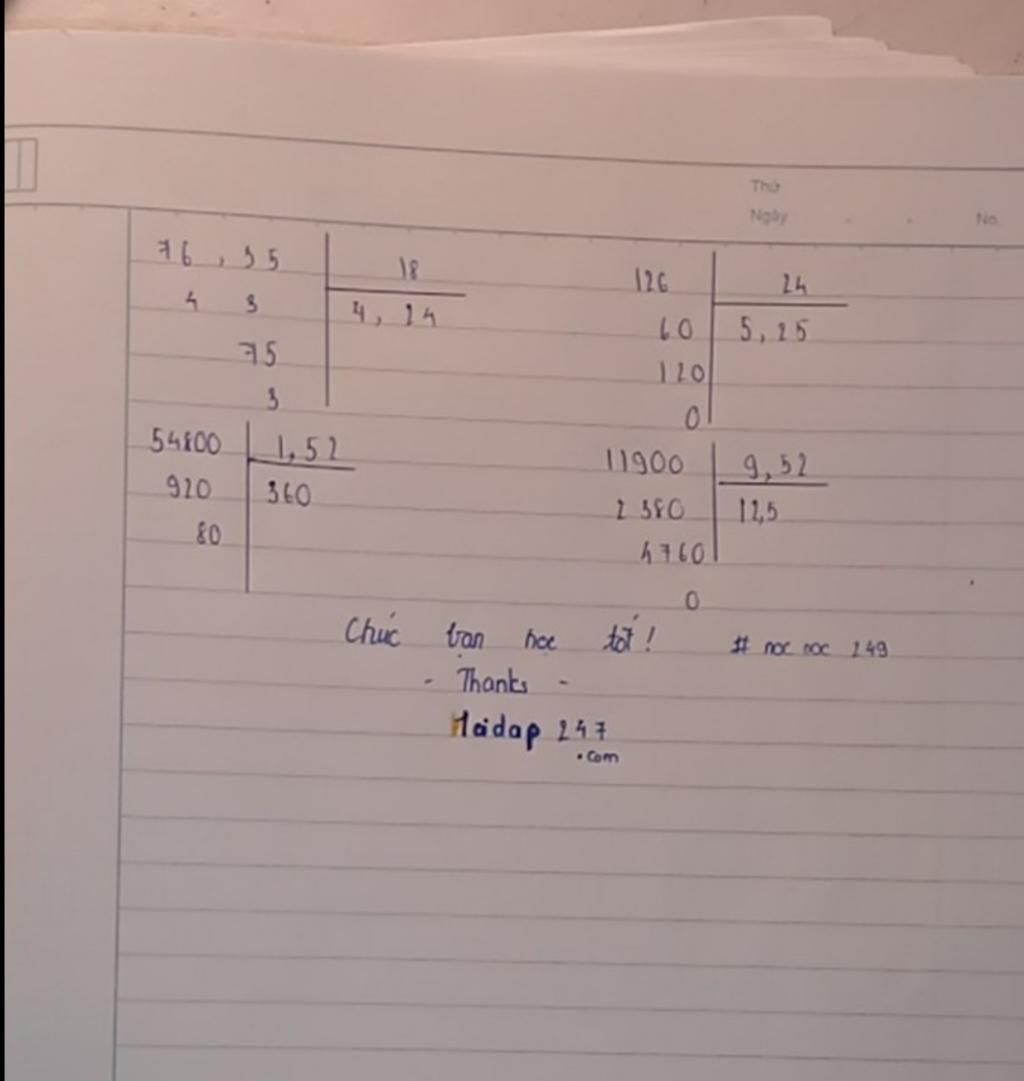 Thứ
Ngày . . No.
76,35 18
4 3 4,24
75
3
126 24
60 5,25
120
0
54800 1,52
920 360
80
11900 9,52
2380 12,5
4760
0
Chúc bạn học tốt! # noc noc 249
- Thanks -
Hoidap 247
.com